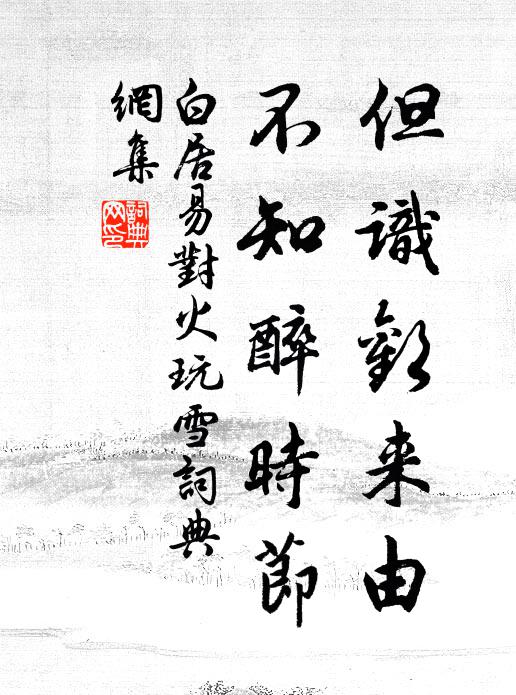 但識歡来由
不知醉時節
白居易對火玩雪詞典
網集
詞典
网印